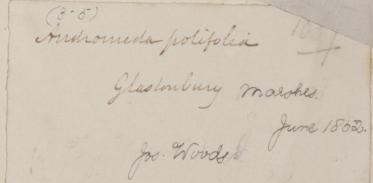 (3-5)
Andromeda polifolia
Glastonbury Marshes.
June 1862.
Jos. Woods